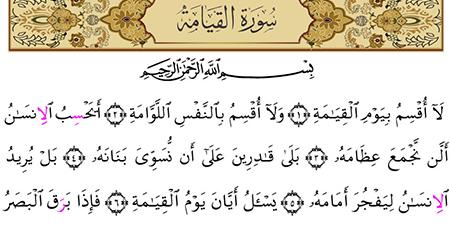 سُورَةُ الْقِيَامَةِ
بِسْمِ ٱللَّهِ ٱلرَّحْمَٰنِ ٱلرَّحِيمِ
لَآ أُقْسِمُ بِيَوْمِ ٱلْقِيَٰمَةِ ﴿١﴾ وَلَآ أُقْسِمُ بِٱلنَّفْسِ ٱللَّوَّامَةِ ﴿٢﴾ أَيَحْسِبُ ٱلِانسَٰنُ
أَلَّن نَّجْمَعَ عِظَامَهُۥ ﴿٣﴾ بَلَىٰ قَٰدِرِينَ عَلَىٰٓ أَن نُّسَوِّىَ بَنَانَهُۥ ﴿٤﴾ بَلْ يُرِيدُ
ٱلِانسَٰنُ لِيَفْجُرَ أَمَامَهُۥ ﴿٥﴾ يَسْـَٔلُ أَيَّانَ يَوْمُ ٱلْقِيَٰمَةِ ﴿٦﴾ فَإِذَا بَرَقَ ٱلْبَصَرُ